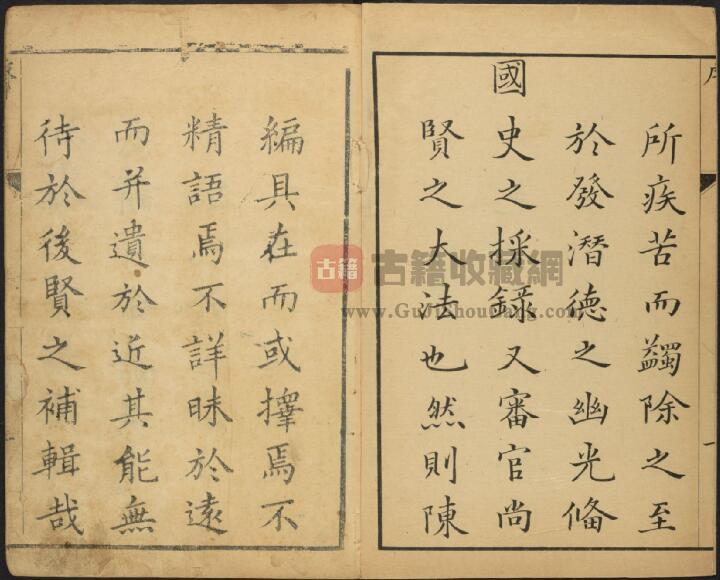 所疾苦而蠲除之至
於發潛德之幽光俻
國史之採錄又審官尚
賢之大法也然則陳
編具在而或擇焉不
精語焉不詳昧於遠
而并遺於近其能無
待於後賢之補輯哉
古籍 古籍收藏網
www.GuJiShouCang.com